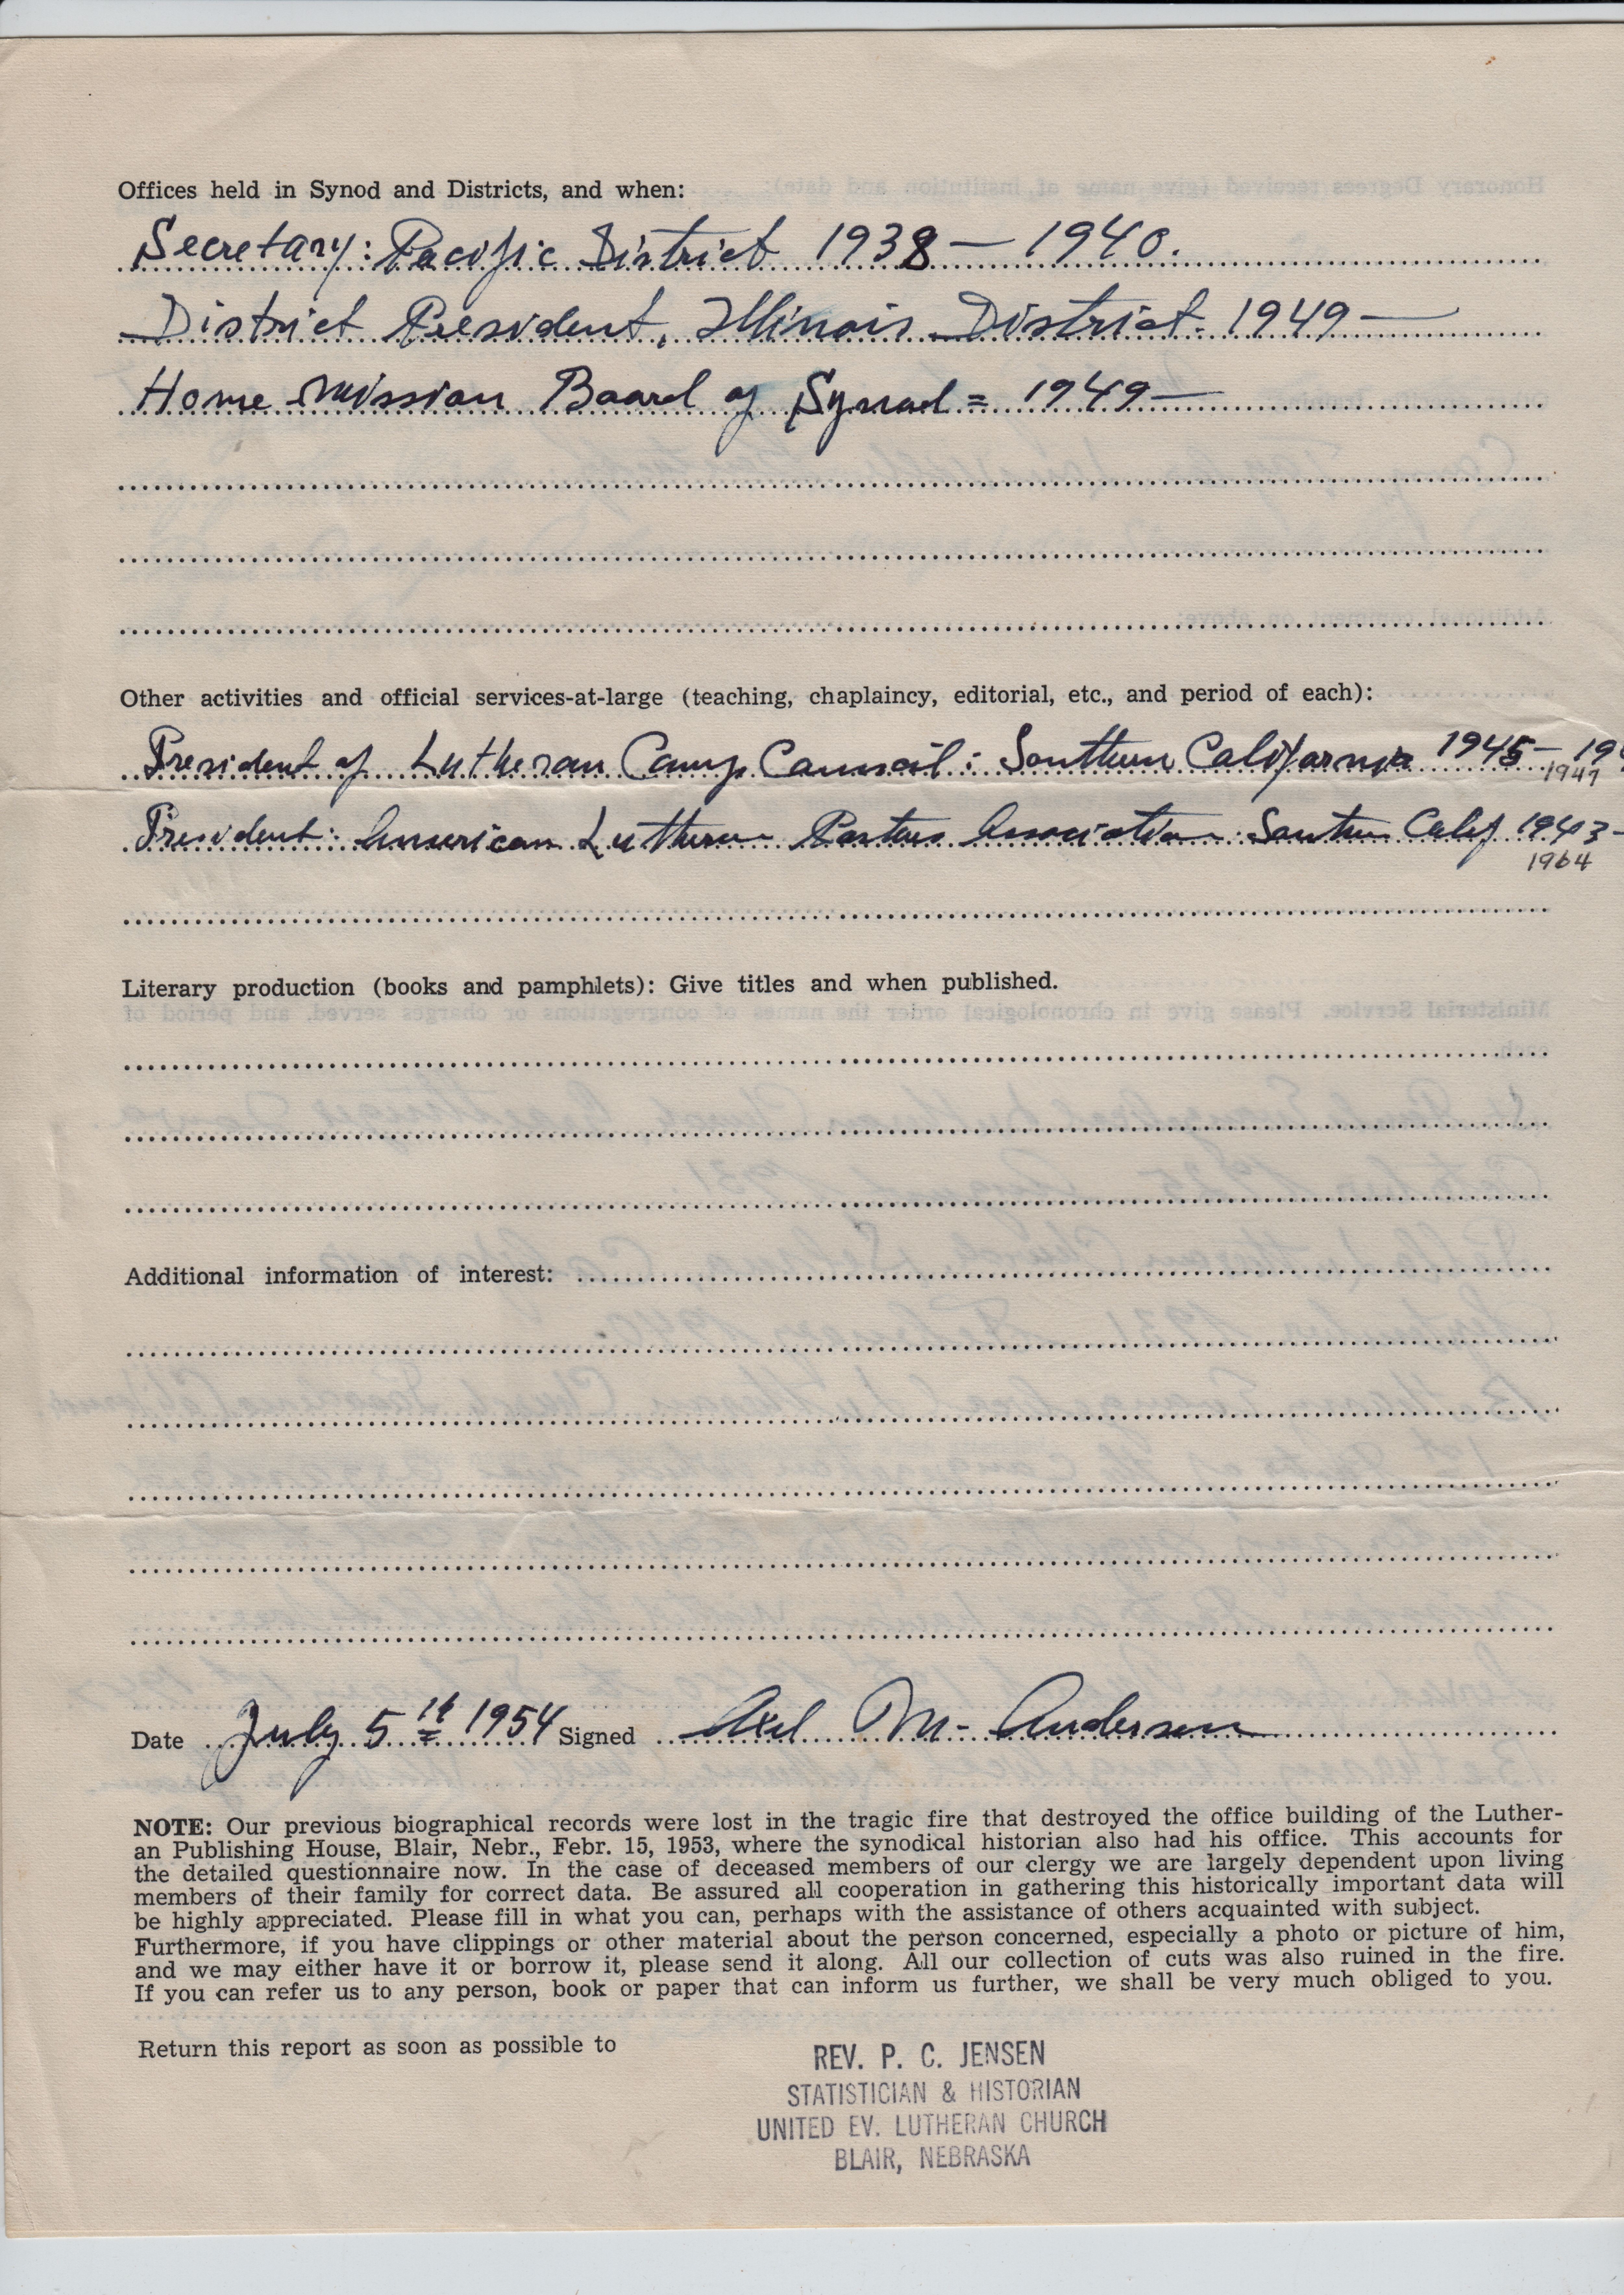 Offices held in Synod and Districts, and when:
Secretary: Pacific District 1938 — 1940.
District President, Illinois District. 1949 —
Home Mission Board of Synod = 1949 —
Other activities and official services-at-large (teaching, chaplaincy, editorial, etc., and period of each):
President of Lutheran Camp Council: Southern California 1945 — 19
1947
President: American Lutheran Pastors Association: Southern Calif 1943 -
1964
Literary production (books and pamphlets): Give titles and when published.
Additional information of interest:
Date July 5th 1954 Signed Axel M. Andersen
NOTE: Our previous biographical records were lost in the tragic fire that destroyed the office building of the Luther-
an Publishing House, Blair, Nebr., Febr. 15, 1953, where the synodical historian also had his office. This accounts for
the detailed questionnaire now. In the case of deceased members of our clergy we are largely dependent upon living
members of their family for correct data. Be assured all cooperation in gathering this historically important data will
be highly appreciated. Please fill in what you can, perhaps with the assistance of others acquainted with subject.
Furthermore, if you have clippings or other material about the person concerned, especially a photo or picture of him,
and we may either have it or borrow it, please send it along. All our collection of cuts was also ruined in the fire.
If you can refer us to any person, book or paper that can inform us further, we shall be very much obliged to you.
Return this report as soon as possible to
REV. P. C. JENSEN
STATISTICIAN & HISTORIAN
UNITED EV. LUTHERAN CHURCH
BLAIR, NEBRASKA